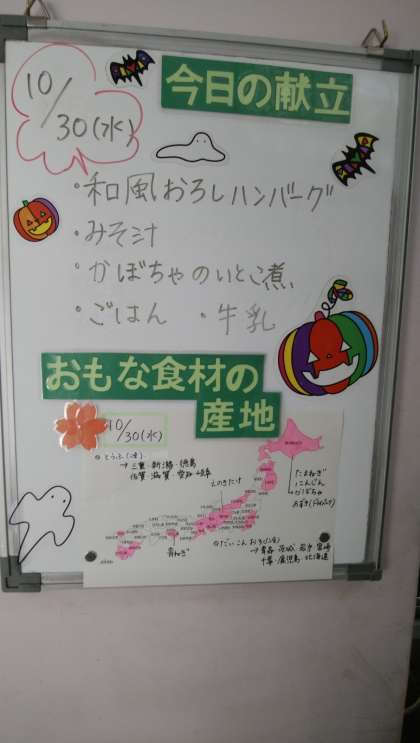 10/30(水)
今日の献立
・和風おろしハンバーグ
・みそ汁
・かぼちゃのいとこ煮
・ごはん ・牛乳
おもな食材の
産地
10/30(水)
→三重・新潟・徳島
佐賀・滋賀・愛知・岐阜
えのきたけ
たまねぎ
にんじん
かぼちゃ
青ねぎ
だいこんおろし(冷)
→青森・茨城・岩手・宮崎
千葉・鹿児島・北海道